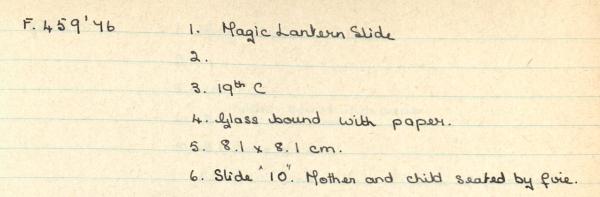 F.459'76 1. Magic Lantern Slide
2.
3. 19th C
4. Glass bound with paper.
5. 8.1 x 8.1 cm.
6. Slide "10". Mother and child seated by fire.